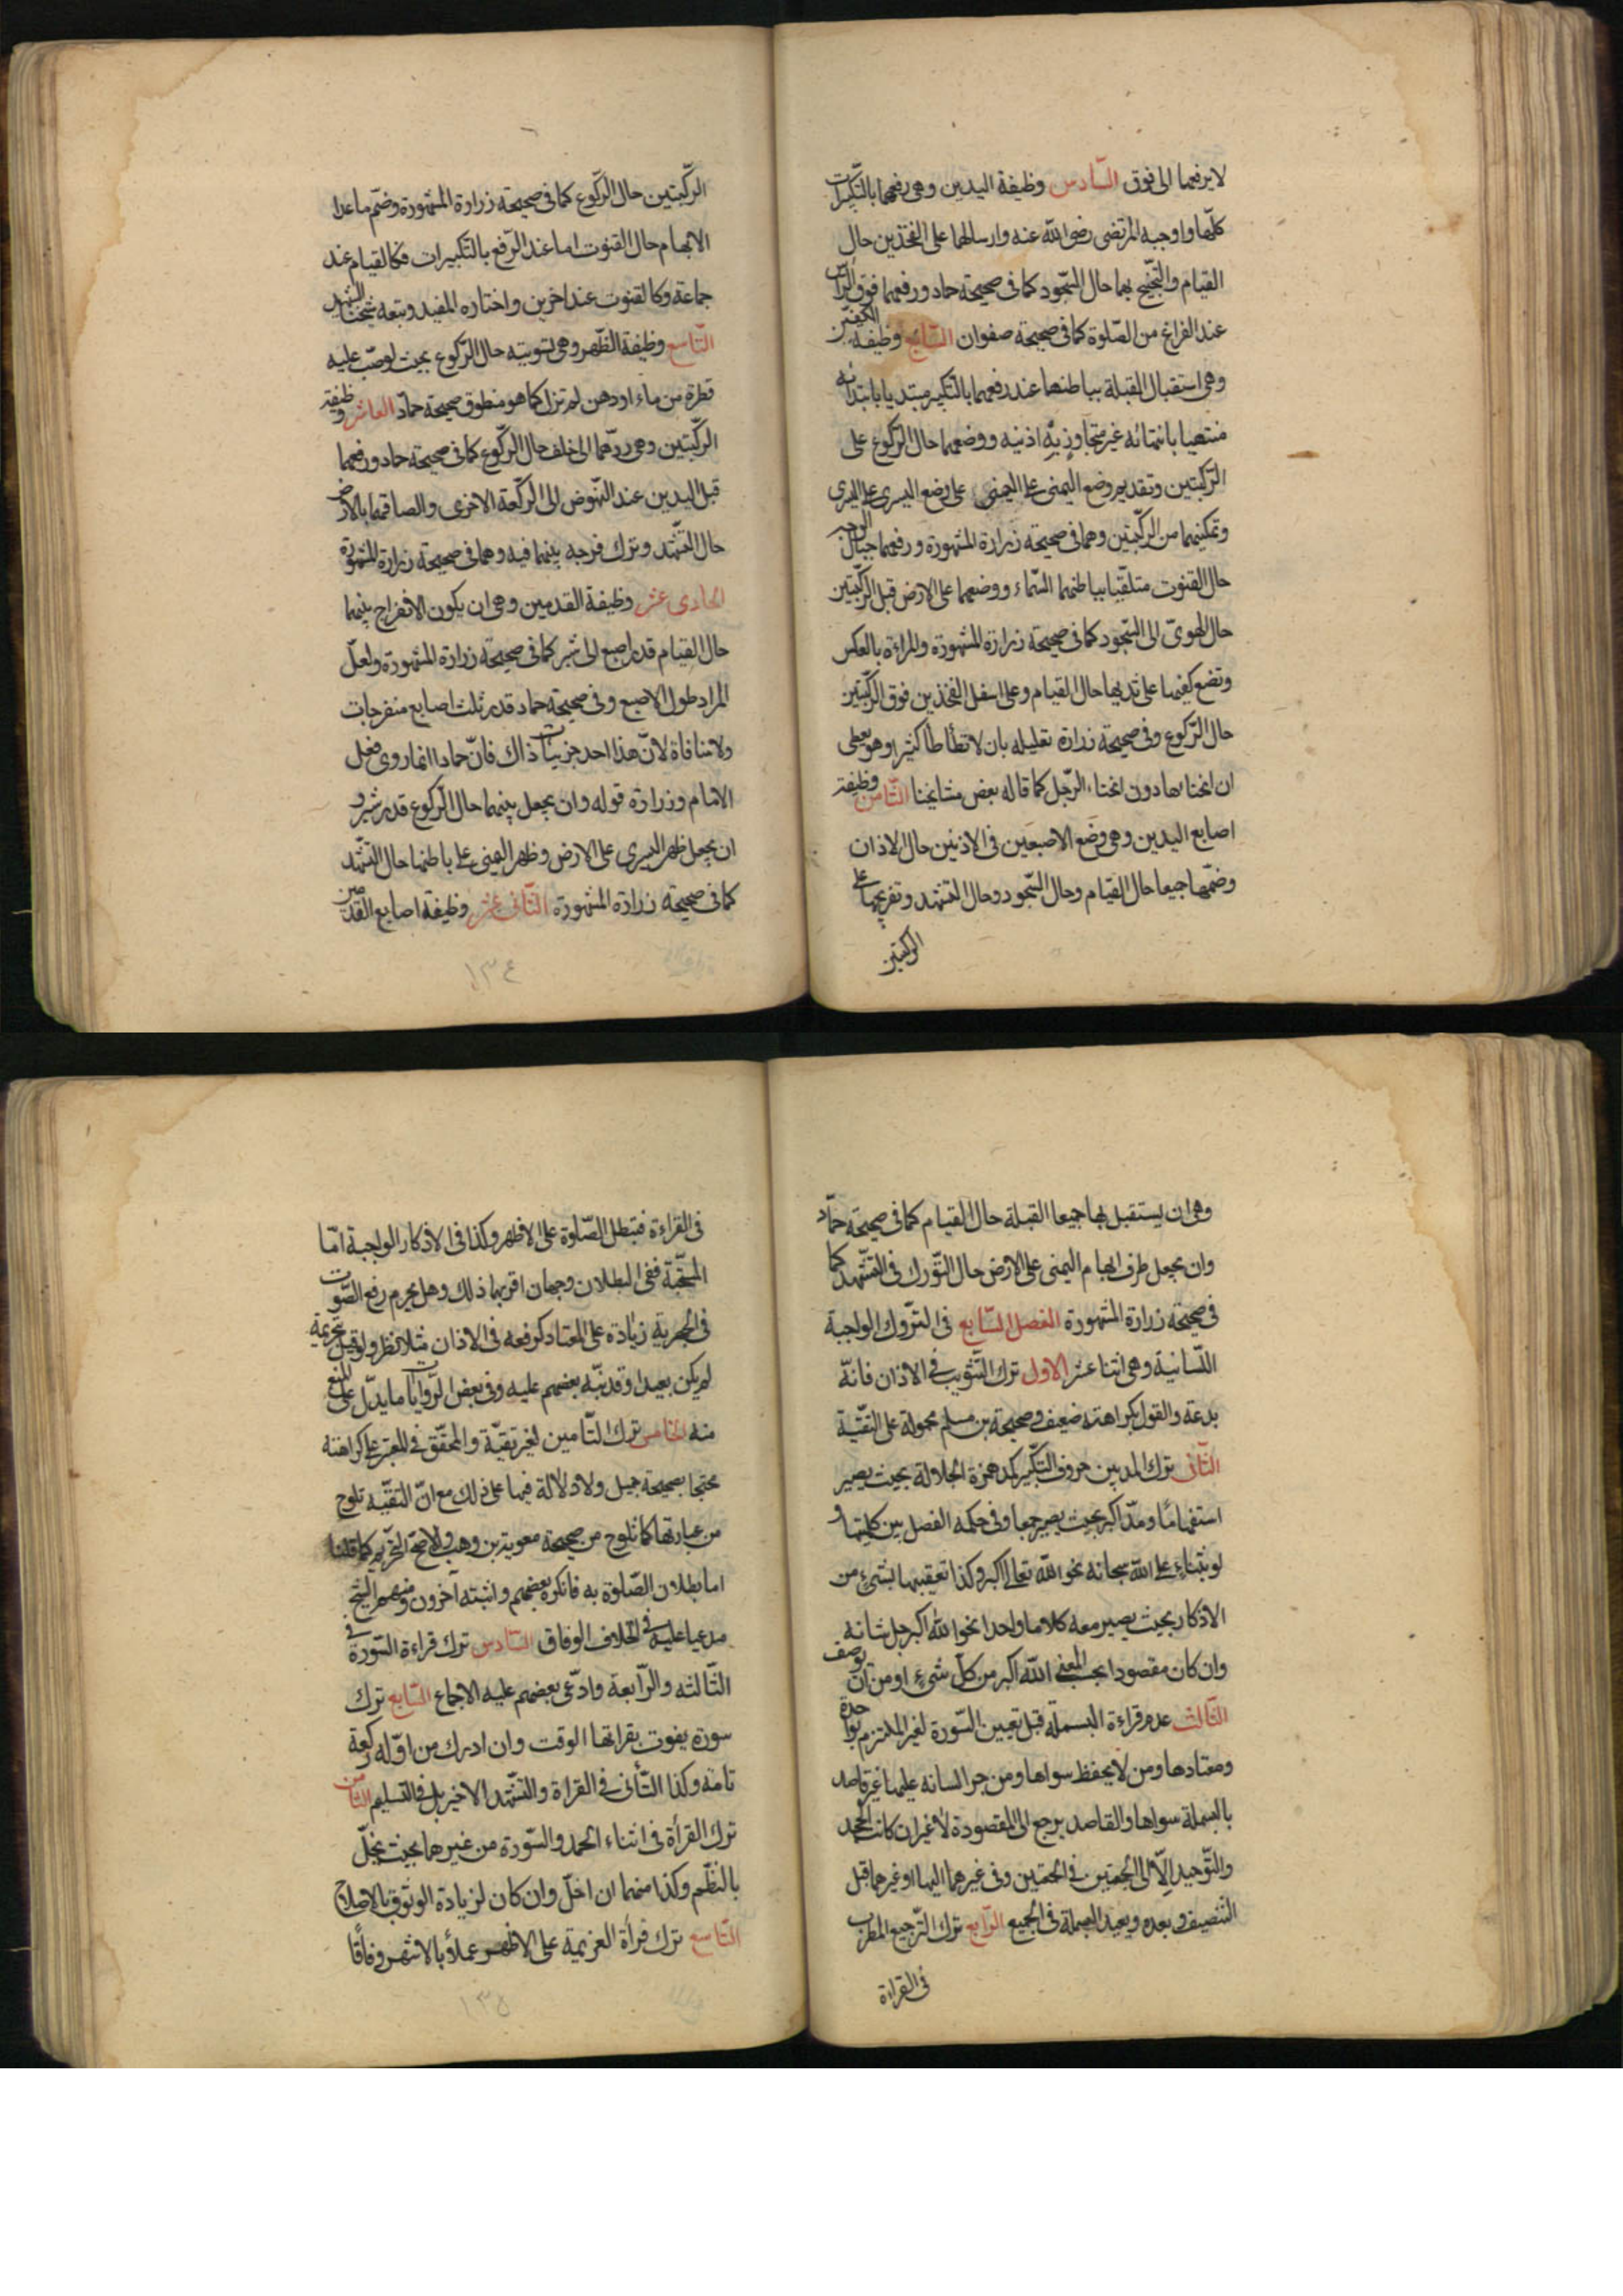 لا يرفعهما الى فوق السّادس وظيفة اليدين وهى رفعهما بالتّكبيرات
كلّها واوجبه المرتضى رضى الله عنه وارسالهما على الفخذين حال
القيام والتّجنّح بهما حال السّجود كما فى صحيحة حماد ورفعهما فوق الرأس
عند الفراغ من الصّلوة كما فى صحيحة صفوان السّابع وظيفة الكفّين
وهى استقبال القبلة بباطنهما عند رفعهما بالتّكبير مبتديا بابتدائه
منتهيا بانتهائه غير متجاوز به اذنيه ووضعهما حال الرّكوع على
الرّكبتين وتقديم وضع اليمنى على اليمنى على وضع اليسرى على اليسرى
وتمكينهما من الرّكبتين وهما فى صحيحة زرارة المشهورة ورفعهما حيال الوجه
حال القنوت متلقّيا بباطنهما السّماء ووضعهما على الارض قبل الرّكبتين
حال الهوىّ الى السّجود كما فى صحيحة زرارة المشهورة والمراءة بالعكس
وتضع كفيها على ثدييها حال القيام وعلى اسفل الفخذين فوق الرّكبتين
حال الرّكوع وفى صحيحة زرارة تعليله بان لا تطأطأ كثيرا وهو يعطى
ان انحناءها دون انحناء الرّجل كما قاله بعض مشايخنا الثّامن وظيفة
اصابع اليدين وهى وضع الاصبعين فى الاذنين حال الاذان
وضمّها جميعا حال القيام وحال السّجود وحال التشهد وتفريجها على
الركبتين
الرّكبتين حال الرّكوع كما فى صحيحة زرارة المشهورة وضمّ ما عدا
الابهام حال القنوت اما عند الرّفع بالتّكبيرات فكالقيام عند
جماعة وكالقنوت عند اخرين واختاره المفيد وتبعه شيخنا الشهيد
التّاسع وظيفة الظّهر وهى تسويته حال الرّكوع بحيث لو صبّ عليه
قطرة من ماء او دهن لم تزل كما هو منطوق صحيحة حمّاد العاشر وظيفة
الرّكبتين وهى ردّهما الى خلف حال الرّكوع كما فى صحيحة حماد ورفعهما
قبل اليدين عند النّهوض الى الرّكعة الاخرى والصاقهما بالارض
حال التّشهّد وترك فرجة بينهما فيه وهما فى صحيحة زرارة المشهورة
الحادى عشر وظيفة القدمين وهى ان يكون الانفراج بينهما
حال القيام قدر اصبع الى شبر كما فى صحيحة زرارة المشهورة ولعلّ
المراد طول الاصبع وفى صحيحة حماد قدر ثلث اصابع منفرجات
ولا منافاة لانّ هذا احد جزئيات ذاك فانّ حمادا انما روى فعل
الامام وزرارة قوله وان يجعل بينهما حال الرّكوع قدر شبر و
ان يجعل ظهر اليسرى على الارض وظهر اليمنى على باطنها حال التّشهّد
كما فى صحيحة زرارة المشهورة الثّانى عشر وظيفة اصابع القدمين
١٣٤
وهى ان يستقبل بها جميعا القبلة حال القيام كما فى صحيحة حمّاد
وان يجعل طرف ابهام اليمنى على الارض حال التّورك فى التّشهّد كما
فى صحيحة زرارة المشهورة الفصل السّابع فى التّروك الواجبة
اللّسانية وهى اثنا عشر الاول ترك التّثويب فى الاذان فانّه
بدعة والقول بكراهته ضعيف وصحيحة بن مسلم محمولة على التّقيّة
الثّانى ترك المد بين حروف التّكبير كمد همزة الجلالة بحيث يصير
استفهامًا ومدّ اكبر بحيث يصير جمعا وفى حكمه الفصل بين كلمتيها و
لو بثناء على الله سبحانه نحو الله تعالى اكبر وكذا تعقيبها بشئ من
الاذكار بحيث يصير معه كلاما واحدا نحو الله اكبر جل شانه
وان كان مقصودا بحسب المعنى الله اكبر من كلّ شئ او من ان يوصف
الثّالث عدم قراءة البسملة قبل تعيين السّورة لغير الملتزم بواحدة
ومعتادها ومن لا يحفظ سواها ومن جر السانه عليها غير قاصد
بالبسملة سواها والقاصد يرجع الى المقصودة لا غير ان كانت الجحد
والتّوحيد الّا الى الجمعتين فى الجمعتين وفى غيرهما اليها او غيرهما قبل
التنصيف وبعده ويعيد البسملة فى الجميع الرّابع ترك التّرجيع المطرب
فى القراءة
فى القراءة فتبطل الصّلوة على الاظهر وكذا فى الاذكار الواجبة امّا
المستحبّة ففى البطلان وجهان اقربهما ذلك وهل يحرم رفع الصّوت
فى الجهرية زيادة على المعتاد كرفعه فى الاذان مثلا نظر ولو قيل بتحريمه
لم يكن بعيدا وقد نبّه بعضهم عليه وفى بعض الرّوايات ما يدلّ على المنع
منه الخامس ترك التّامين لغير تقيّة والمحقّق فى المعتبر على كراهته
محتجا بصحيحة جميل ولا دلالة فيها على ذلك مع انّ التقيّه تلوح
من عبارتها كما تلوح من صحيحة معوية بن وهب والاصحّ التحريم كما قلنا
اما بطلان الصّلوة به فانكره بعضهم واثبته آخرون ومنهم الشيخ
مدعيا عليه فى الخلاف الوفاق السّادس ترك قراءة السّورة فى
الثّالثه والرّابعة وادّعى بعضهم عليه الاجماع السّابع ترك
سورة يفوت بقراتها الوقت وان ادرك من اوّله ركعة
تامة وكذا التّأنى فى القراة والتّشهّد الاخير بل فى التسليم الثّامن
ترك القرأة فى اثناء الحمد والسّورة من غيرهما بحيث يخلّ
بالنظم وكذا منهما ان اخلّ وان كان لزيادة الوثوق بالاصلاح
التّاسع ترك قرأة العزيمة على الاظهر عملا بالاشهر وفاقًا
١٣٥